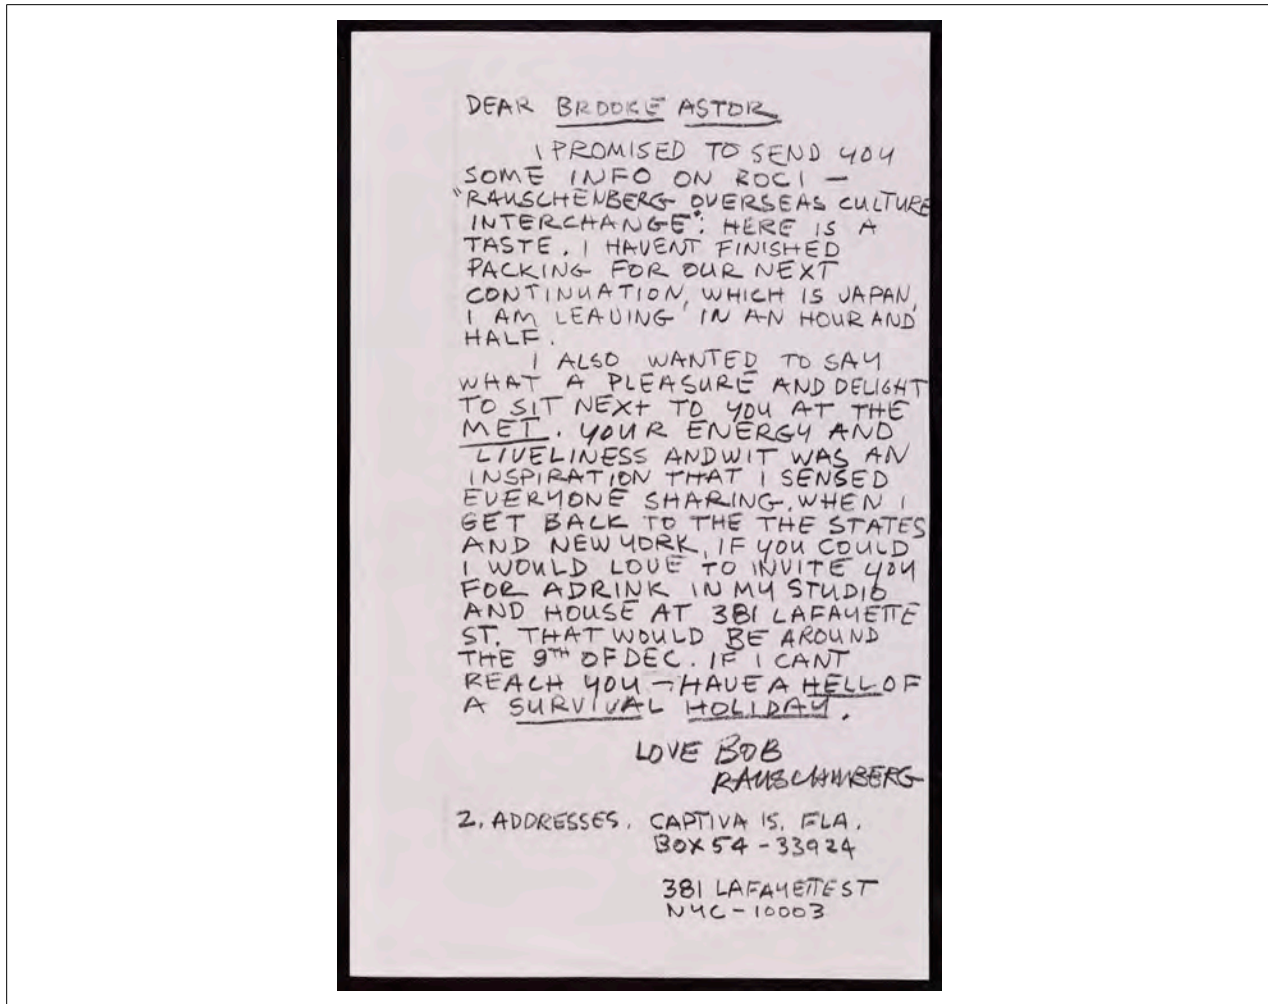 DEAR BROOKE ASTOR
I PROMISED TO SEND YOU
SOME INFO ON ROCI —
"RAUSCHENBERG OVERSEAS CULTURE
INTERCHANGE". HERE IS A
TASTE. I HAVENT FINISHED
PACKING FOR OUR NEXT
CONTINUATION, WHICH IS JAPAN,
I AM LEAVING IN AN HOUR AND
HALF.
I ALSO WANTED TO SAY
WHAT A PLEASURE AND DELIGHT
TO SIT NEXT TO YOU AT THE
MET. YOUR ENERGY AND
LIVELINESS AND WIT WAS AN
INSPIRATION THAT I SENSED
EVERYONE SHARING. WHEN I
GET BACK TO THE THE STATES
AND NEW YORK, IF YOU COULD
I WOULD LOVE TO INVITE YOU
FOR A DRINK IN MY STUDIO
AND HOUSE AT 381 LAFAYETTE
ST. THAT WOULD BE AROUND
THE 9TH OF DEC. IF I CANT
REACH YOU — HAVE A HELL OF
A SURVIVAL HOLIDAY.
LOVE BOB
RAUSCHENBERG
2. ADDRESSES. CAPTIVA IS. FLA.
BOX 54 - 33924
381 LAFAYETTE ST
NYC - 10003